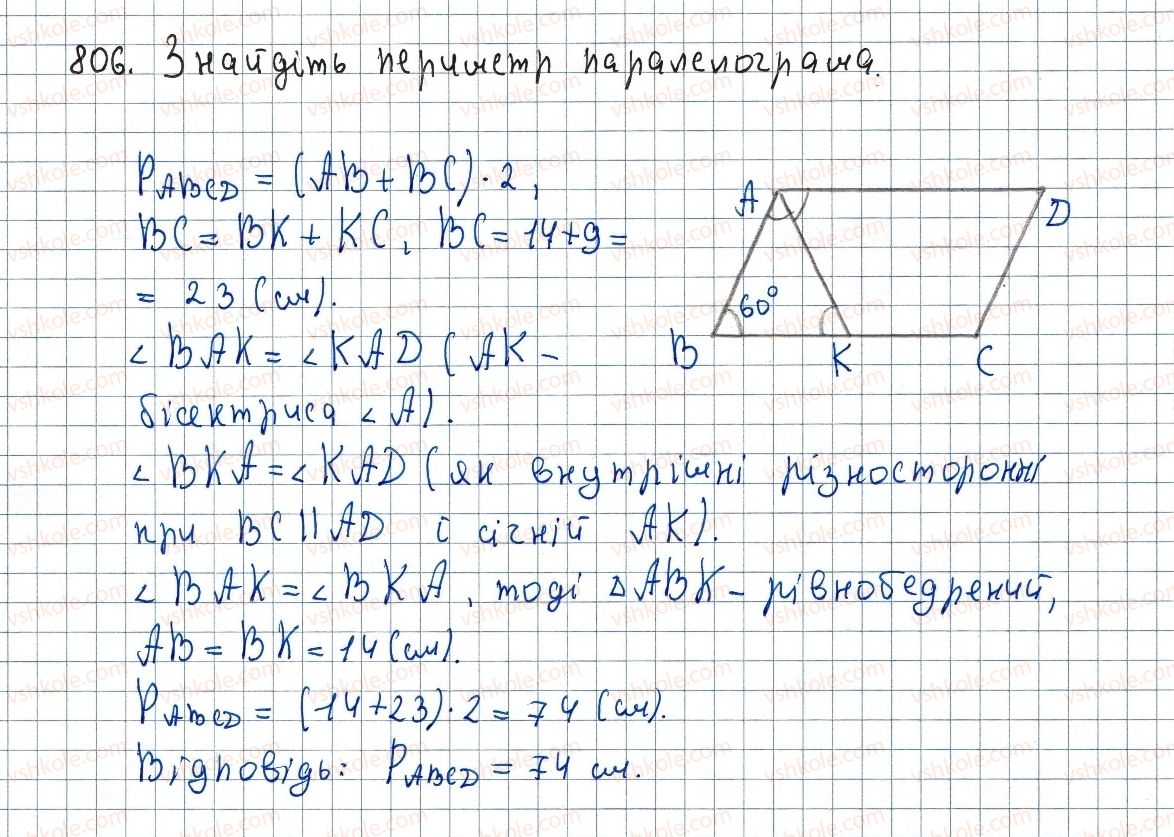 806. Знайдіть периметр паралелограма.
P ABCD = (AB + BC) · 2,
BC = BK + KC, BC = 14 + 9 =
= 23 (см).
∠ BAK = ∠ KAD (AK –
бісектриса ∠ A).
∠ BKA = ∠ KAD (як внутрішні різносторонні
при BC || AD і січній AK).
∠ BAK = ∠ BKA, тоді Δ ABK – рівнобедрений,
AB = BK = 14 (см).
P ABCD = (14 + 23) · 2 = 74 (см).
Відповідь: P ABCD = 74 см.
A D
60°
B K C
vshkole.com